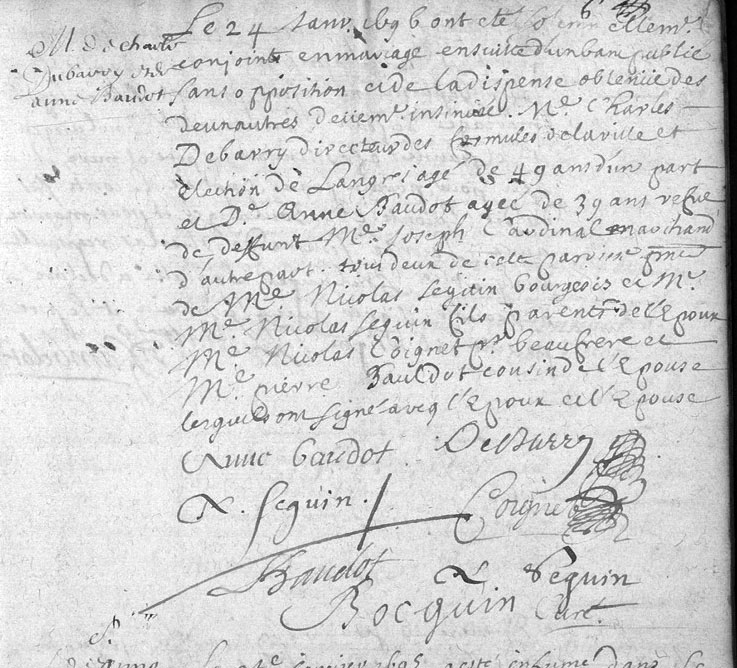 M. de charle
Dubarry et de
anne Baudot
Le 24 Janv. 1696 ont eté solemnellemt.
conjoint en mariage ensuite d'un ban publié
sans opposition et de la dispense obtenüe des
deux autres M.e Charles
Debarry directeur des de la ville et
election de Langres agé de 49 ans d'un part
et D.e Anne Baudot agée de 39 ans vefue
de deffunt M.e Joseph Cardinal marchand
d'autre part. tous deux de cete paroisse
de M.e Nicolas Seguin bourgeois et M.r
M.e Nicolas Seguin fils parents de l'Epoux
M.e Nicolas Coignet beaufrere et
M.e pierre Bauldot cousin de l'Epouse
lesquels ont signé avec l'Epoux et l'Epouse
Anne baudot. Debarry
N. Seguin. Coignet
Baudot N Seguin
Bocquin Curé.